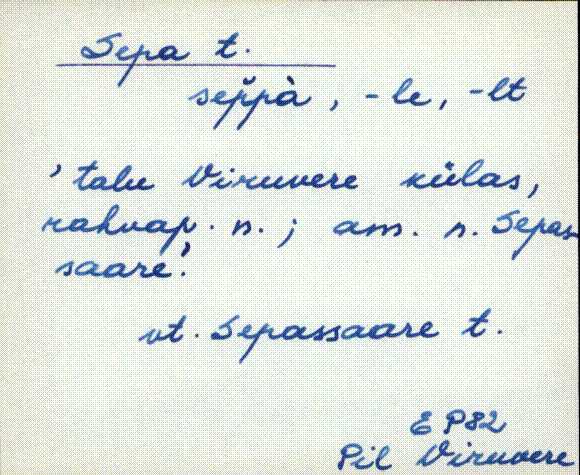 Sepa t.
sep̆pà, -le, -lt
'talu Viruvere külas,
rahvap. n.; am. n. Sepas
saare'.
vt. Sepassaare t.
E P82
Pil Viruvere